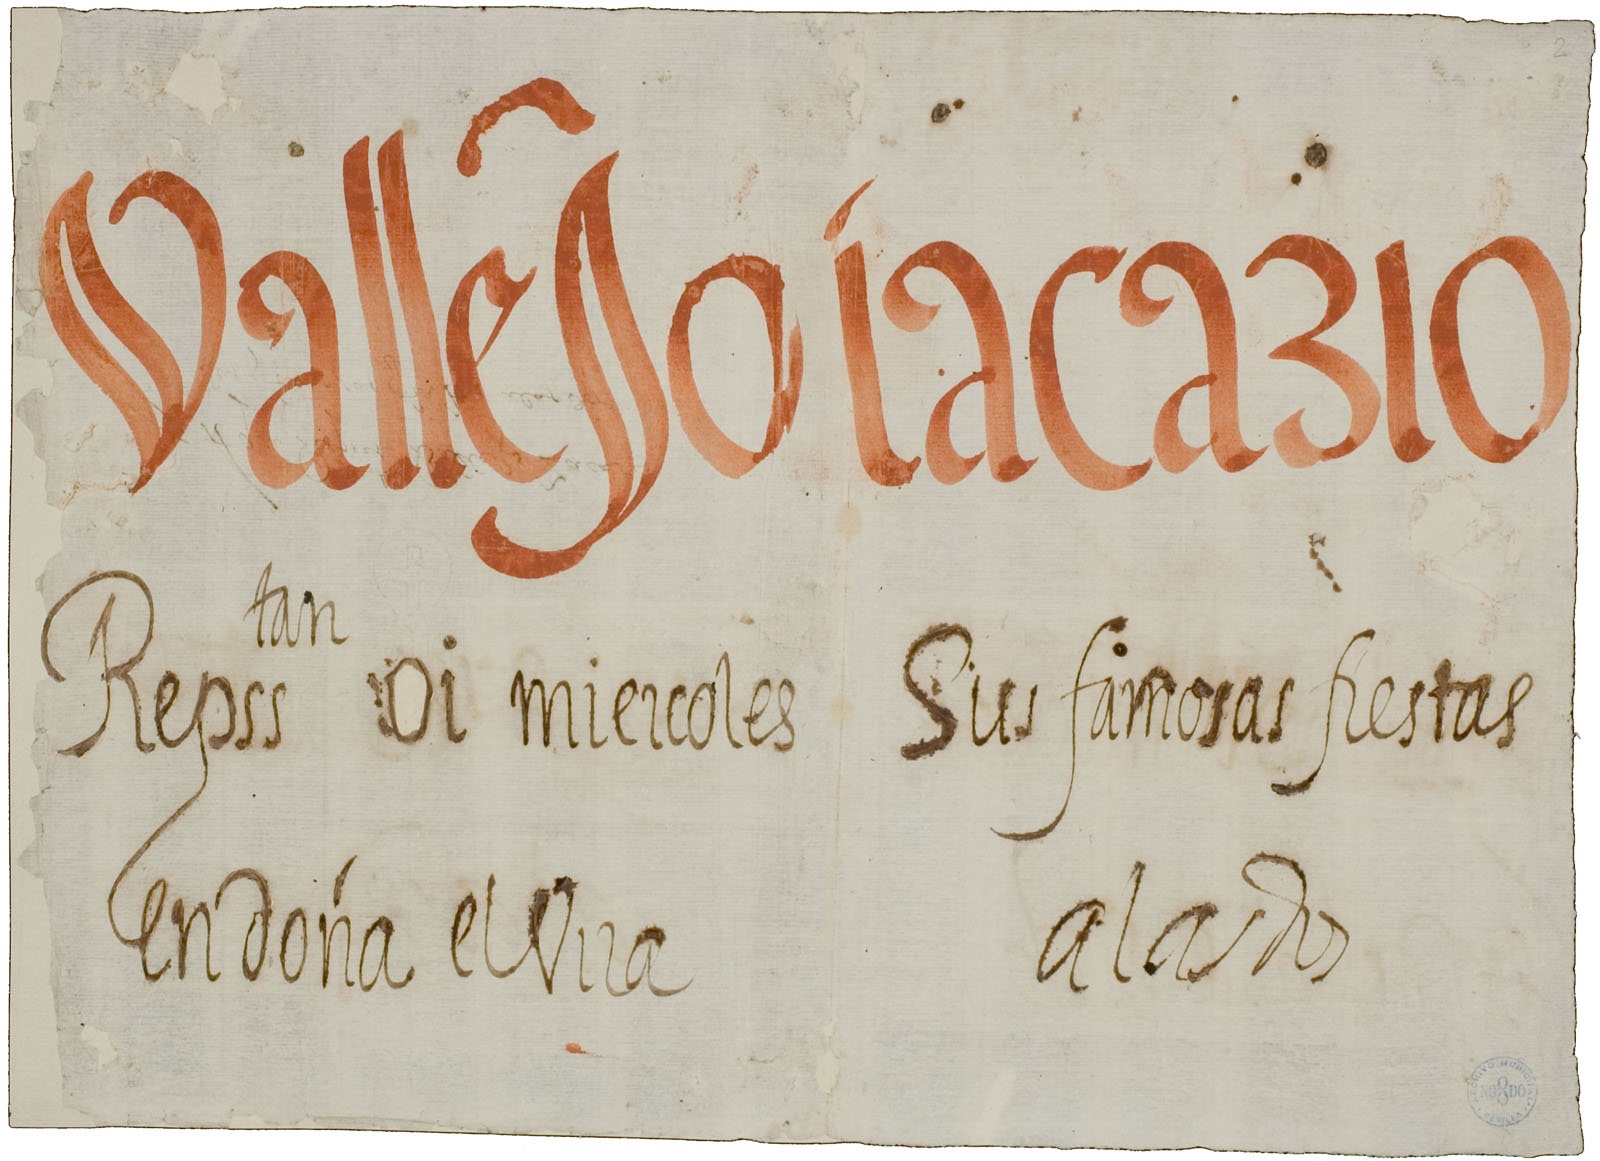 Vallejo iacazio
tan
Repss oi miercoles Sus famosas fiestas
en doña elVira a las dos
2
ARCHIVO MUNICIPAL
NO8DO
SEVILLA